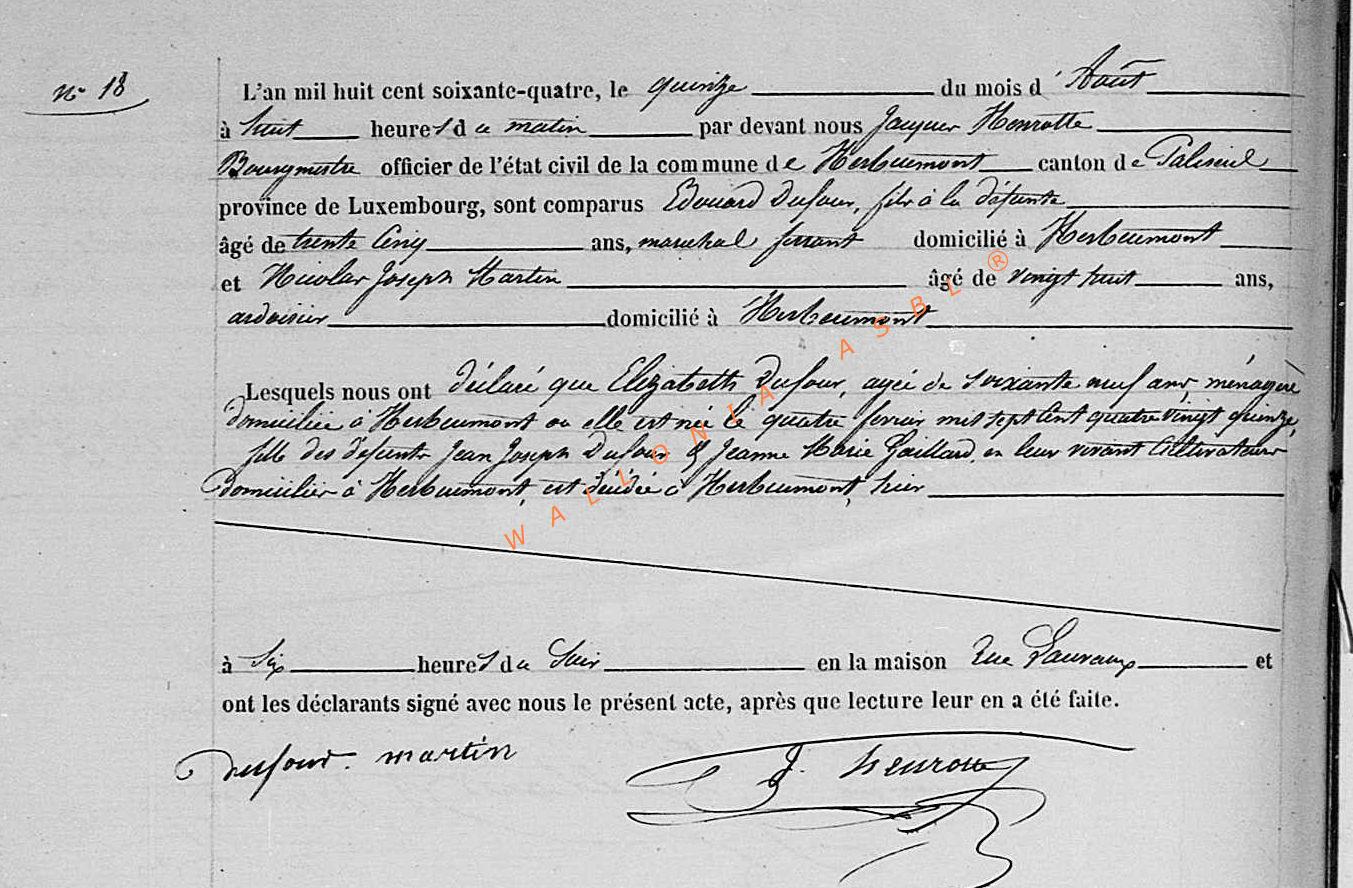 N° 18
L'an mil huit cent soixante-quatre, le quinze du mois d'Août
à huit heures du matin par devant nous Jacques Henrotte
Bourgmestre officier de l'état civil de la commune de Herbeumont canton de Paliseul
province de Luxembourg, sont comparus Edouard Dufour, fils à la défunte
âgé de trente cinq ans, maréchal ferrant domicilié à Herbeumont
et Nicolas Joseph Martin âgé de vingt huit ans,
ardoisier domicilié à Herbeumont
Lesquels nous ont déclaré que Elizabeth Dufour, agée de soixante neuf ans, ménagère
domiciliée à Herbeumont ou elle est née le quatre fevrier mil sept cent quatre vingt quinze,
fille des défunts Jean Joseph Dufour & Jeanne Marie Gaillard, en leur vivant Cultivateurs
domiciliés à Herbeumont, est décédée à Herbeumont, hier
à Six heures du Soir en la maison Rue et
ont les déclarants signé avec nous le présent acte, après que lecture leur en a été faite.
Dufour. martin J. henrotte
WALLONIA ASBL ®